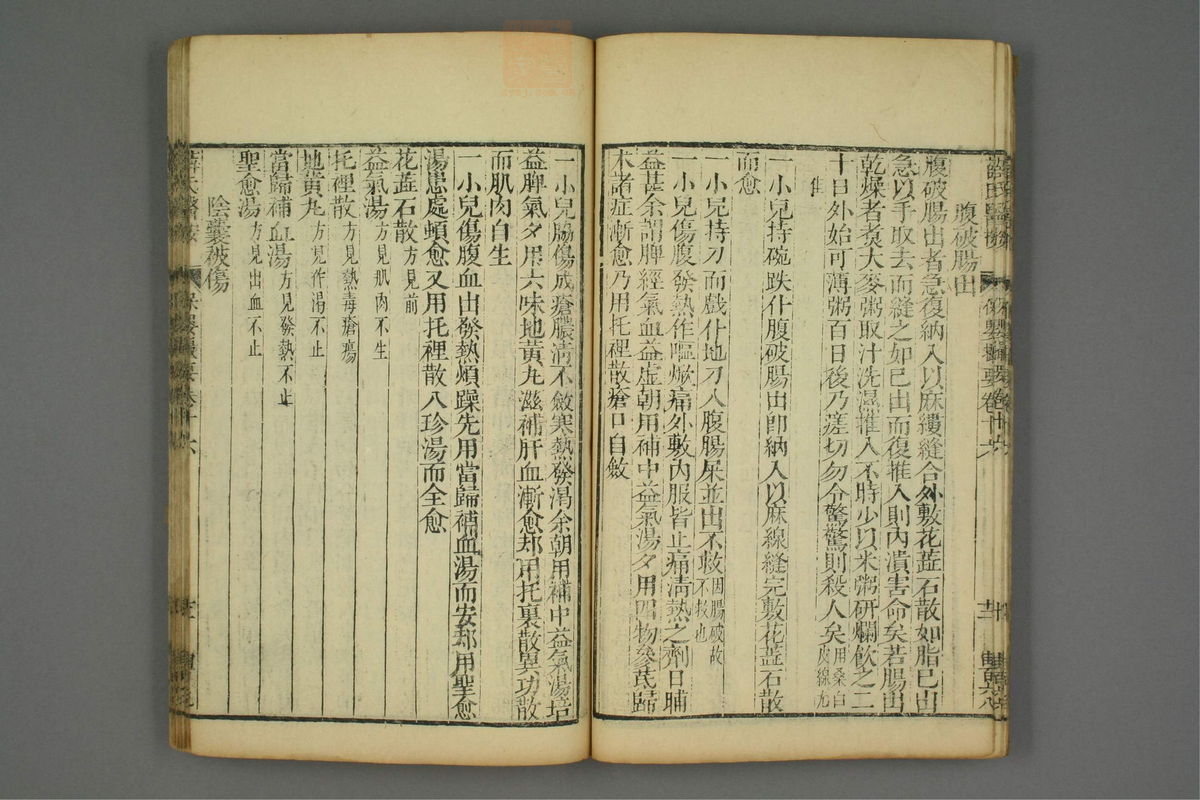 腹破腸出
腹破腸出者急復納入以麻縷縫合外敷花蕋石散如脂已出
急以手取去而縫之如已出而復推入則內潰害命矣若腸出
乾燥者煑大麥粥取汁洗濕推入不時少以米粥研爛飲之二
十日外始可薄粥百日後乃瘥切勿令驚驚則殺人矣用桑白皮線尤
佳
一小兒持碗跌仆腹破腸出即納入以麻線縫完敷花蕋石散
而愈
一小兒持刀而戲仆地刀入腹腸屎並出不救因腸破故不救也
一小兒傷腹發熱作嘔焮痛外敷內服皆止痛清熱之劑日晡
益甚余謂脾經氣血益虛朝用補中益氣湯夕用四物參芪歸
木諸症漸愈乃用托裡散瘡口自斂
一小兒脇傷成瘡膿清不斂寒熱發渴余朝用補中益氣湯培
益脾氣夕用六味地黃丸滋補肝血漸愈却用托裏散異功散
而肌肉自生
一小兒傷腹血出發熱煩躁先用當歸補血湯而安却用聖愈
湯患處頓愈又用托裡散八珍湯而全愈
花蕋石散方見前
益氣湯方見肌肉不生
托裡散方見熱毒瘡瘍
地黃丸方見作渴不止
當歸補血湯方見發熱不止
聖愈湯方見出血不止
陰囊被傷
薛氏醫案
保嬰撮要卷十六